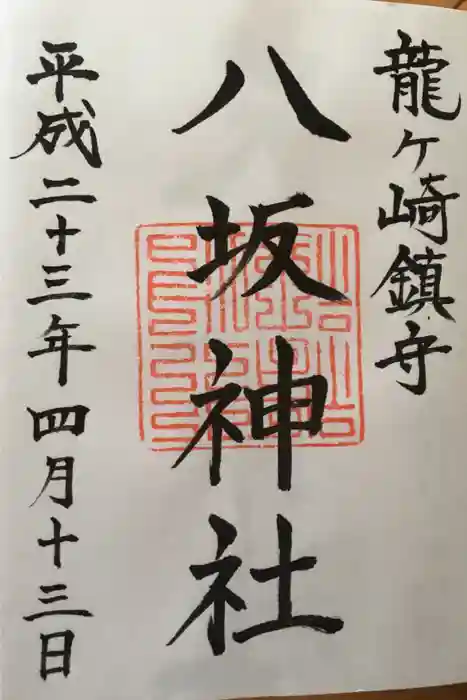 龍ヶ崎鎮守
八坂神社
平成二十三年四月十三日